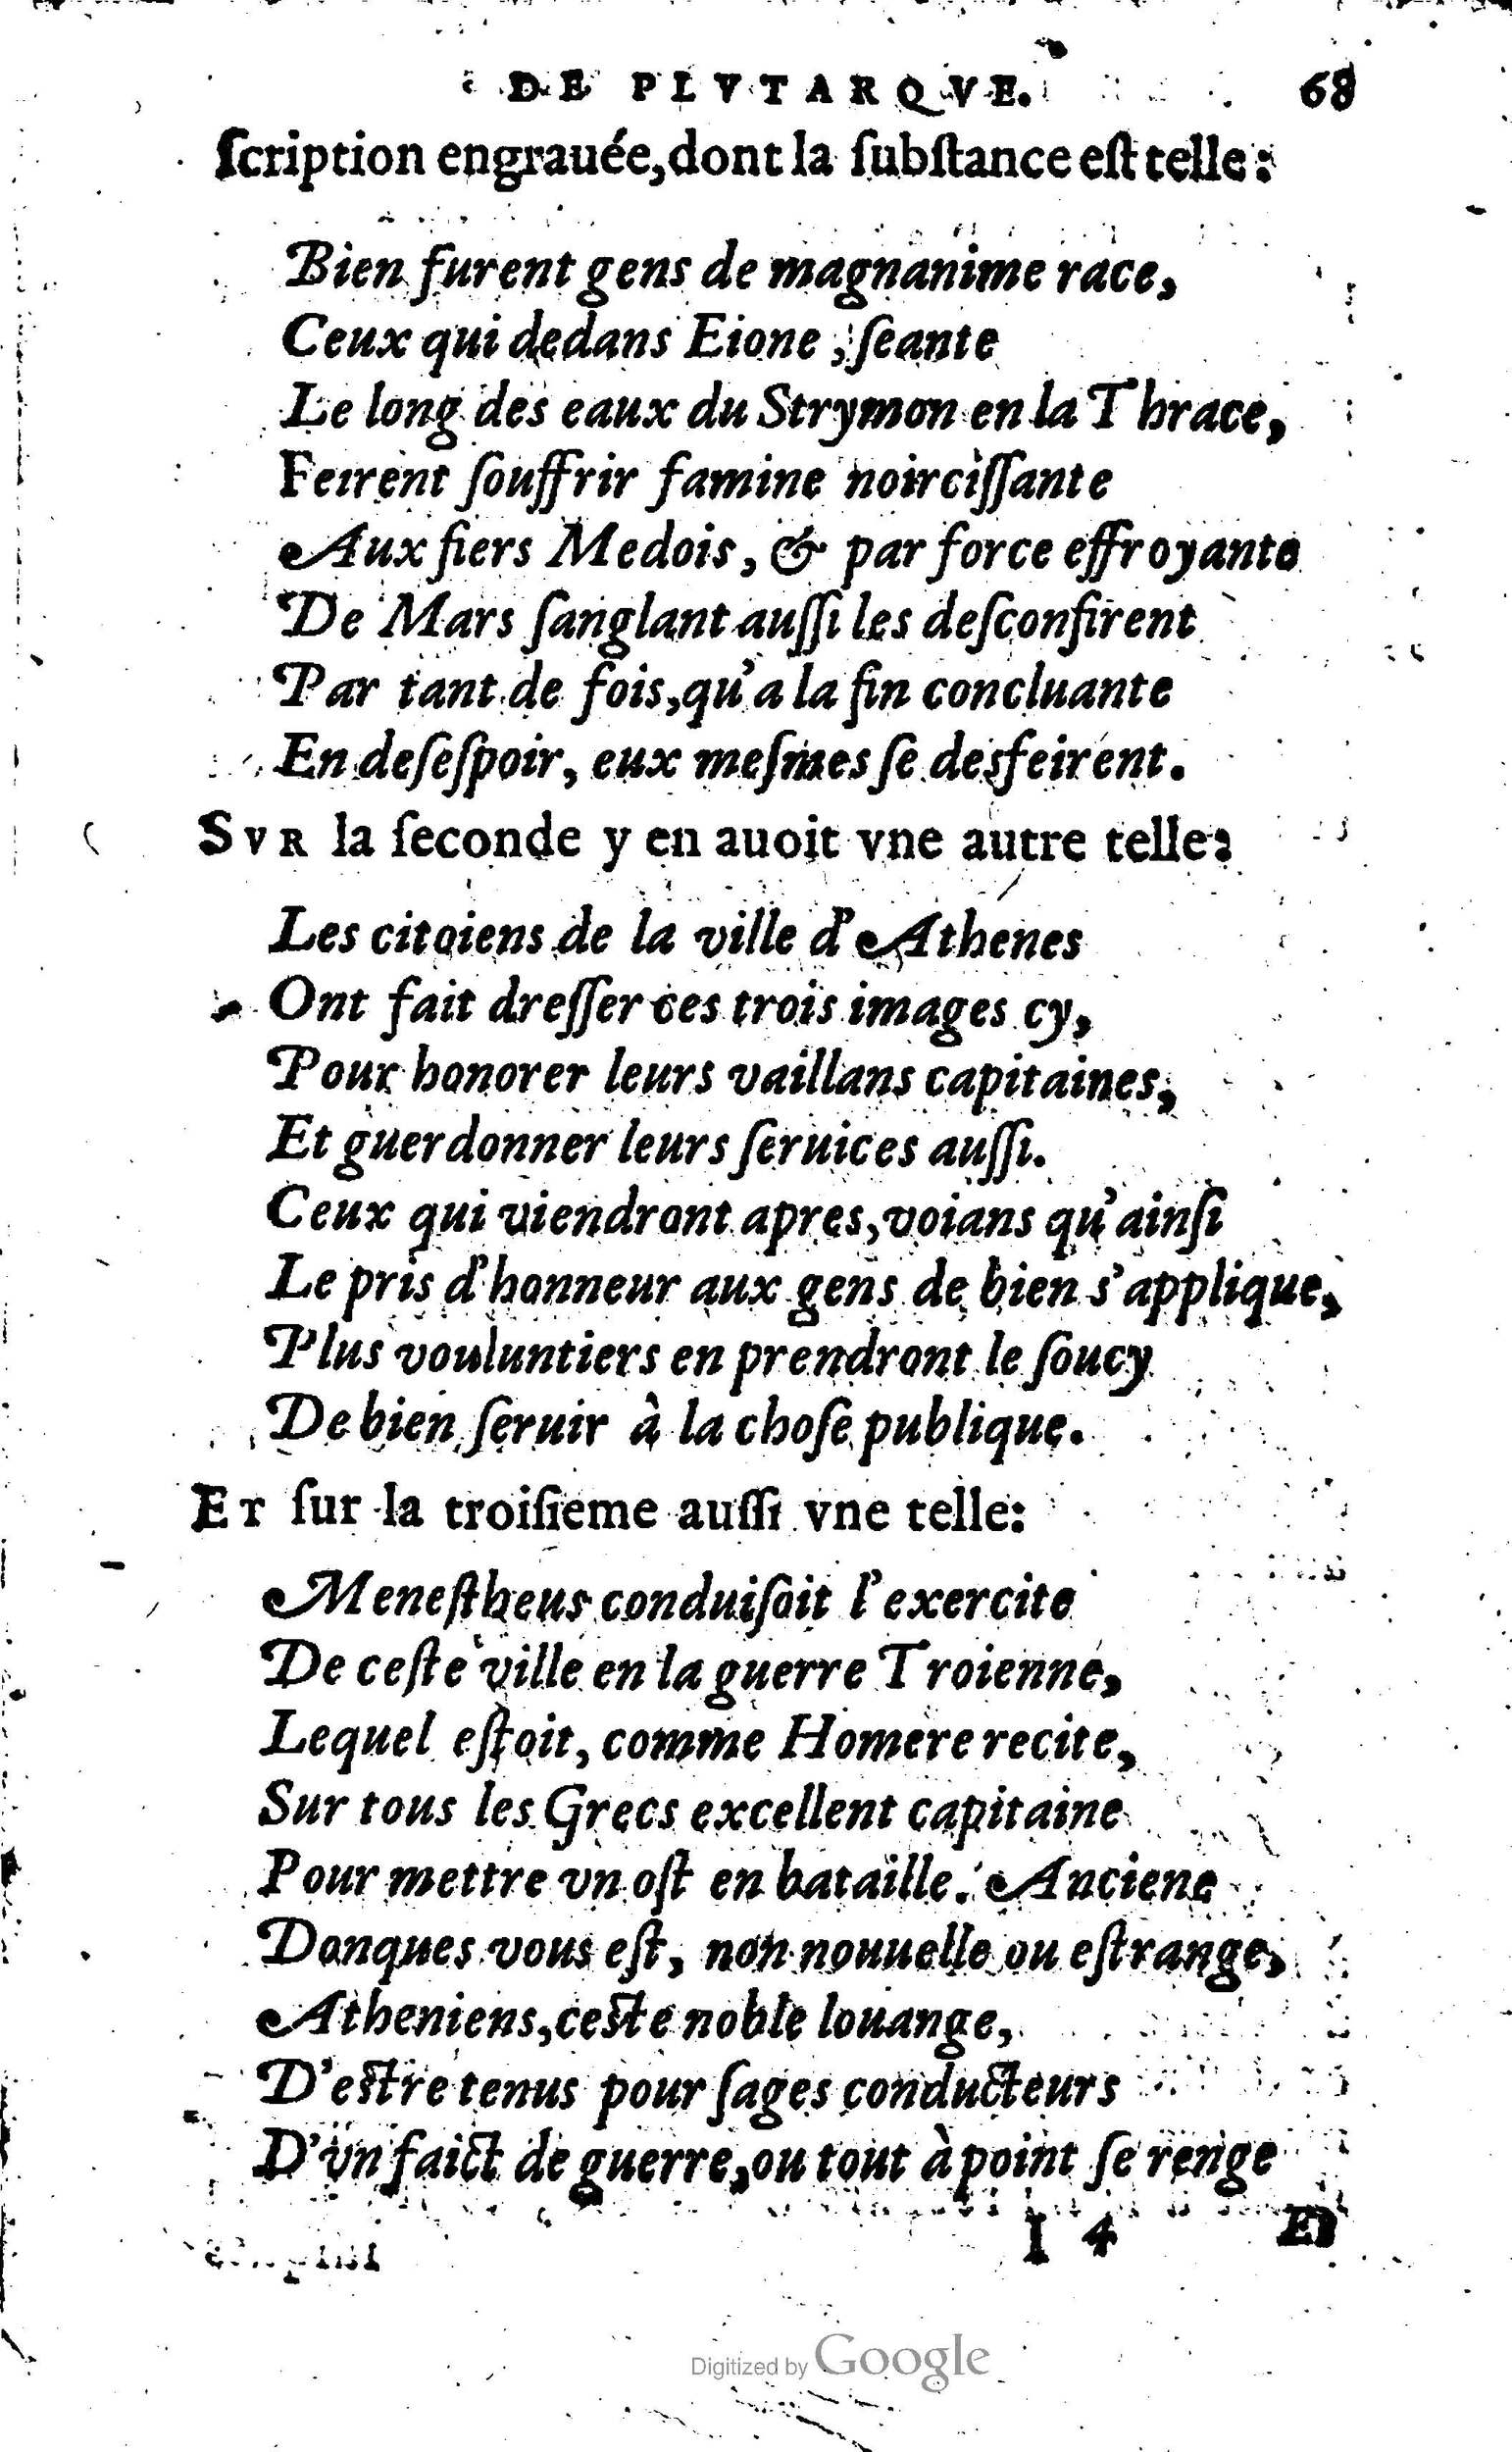 DE PLVTARQVE. 68
ſcription engrauée, dont la ſubſtance eſt telle:
Bien furent gens de magnanime race,
Ceux qui dedans Eione, ſeante
Le long des eaux du Strymon en la Thrace,
Feirent ſouffrir famine noirciſſante
Aux fiers Medois, & par force effroyante
De Mars ſanglant auſſi les deſconfirent
Par tant de fois, qu'a la fin concluante
En deſeſpoir, eux meſmes ſe desfeirent.
SVR la ſeconde y en auoit vne autre telle:
Les citoiens de la ville d'Athenes
Ont fait dreſſer ces trois images cy,
Pour honorer leurs vaillans capitaines,
Et guerdonner leurs ſeruices auſſi.
Ceux qui viendront apres, voians qu'ainſi
Le pris d'honneur aux gens de bien s'applique,
Plus vouluntiers en prendront le ſoucy
De bien ſeruir à la choſe publique.
ET ſur la troiſieme auſſi vne telle:
Meneſtheus conduiſoit l'exercite
De ceſte ville en la guerre Troienne,
Lequel eſtoit, comme Homere recite,
Sur tous les Grecs excellent capitaine
Pour mettre vn oſt en bataille. Anciene
Donques vous eſt, non nouuelle ou eſtrange,
Atheniens, ceſte noble louange,
D'eſtre tenus pour ſages conducteurs
D'vn faict de guerre, ou tout à point ſe renge
I 4
Digitized by Google